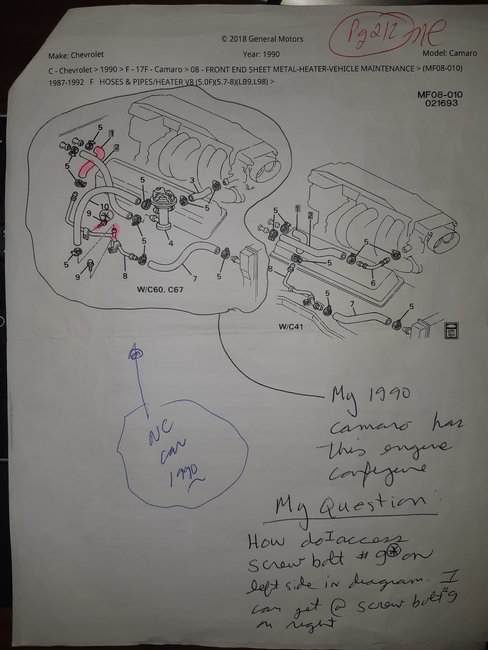 Pg 212
© 2018 General Motors
Make: Chevrolet Year: 1990 Model: Camaro
C - Chevrolet > 1990 > F - 17F - Camaro > 08 - FRONT END SHEET METAL-HEATER-VEHICLE MAINTENANCE > (MF08-010)
1987-1992 F HOSES & PIPES/HEATER V8 (5.0F)(5.7-8)(LB9,L98) >
MF08-010
021693
5
1
2
5
5
3
5
10
9
4
5
5
9
8
7
5
W/C60, C67
1
2
5
5
5
6
8
5
7
5
W/C41
My 1990
camaro has
this engine
configure
NC
car
1990
My Question:
How do I access
screw bolt #9 on
left side in diagram. I
can get @ screw bolt 9
on right